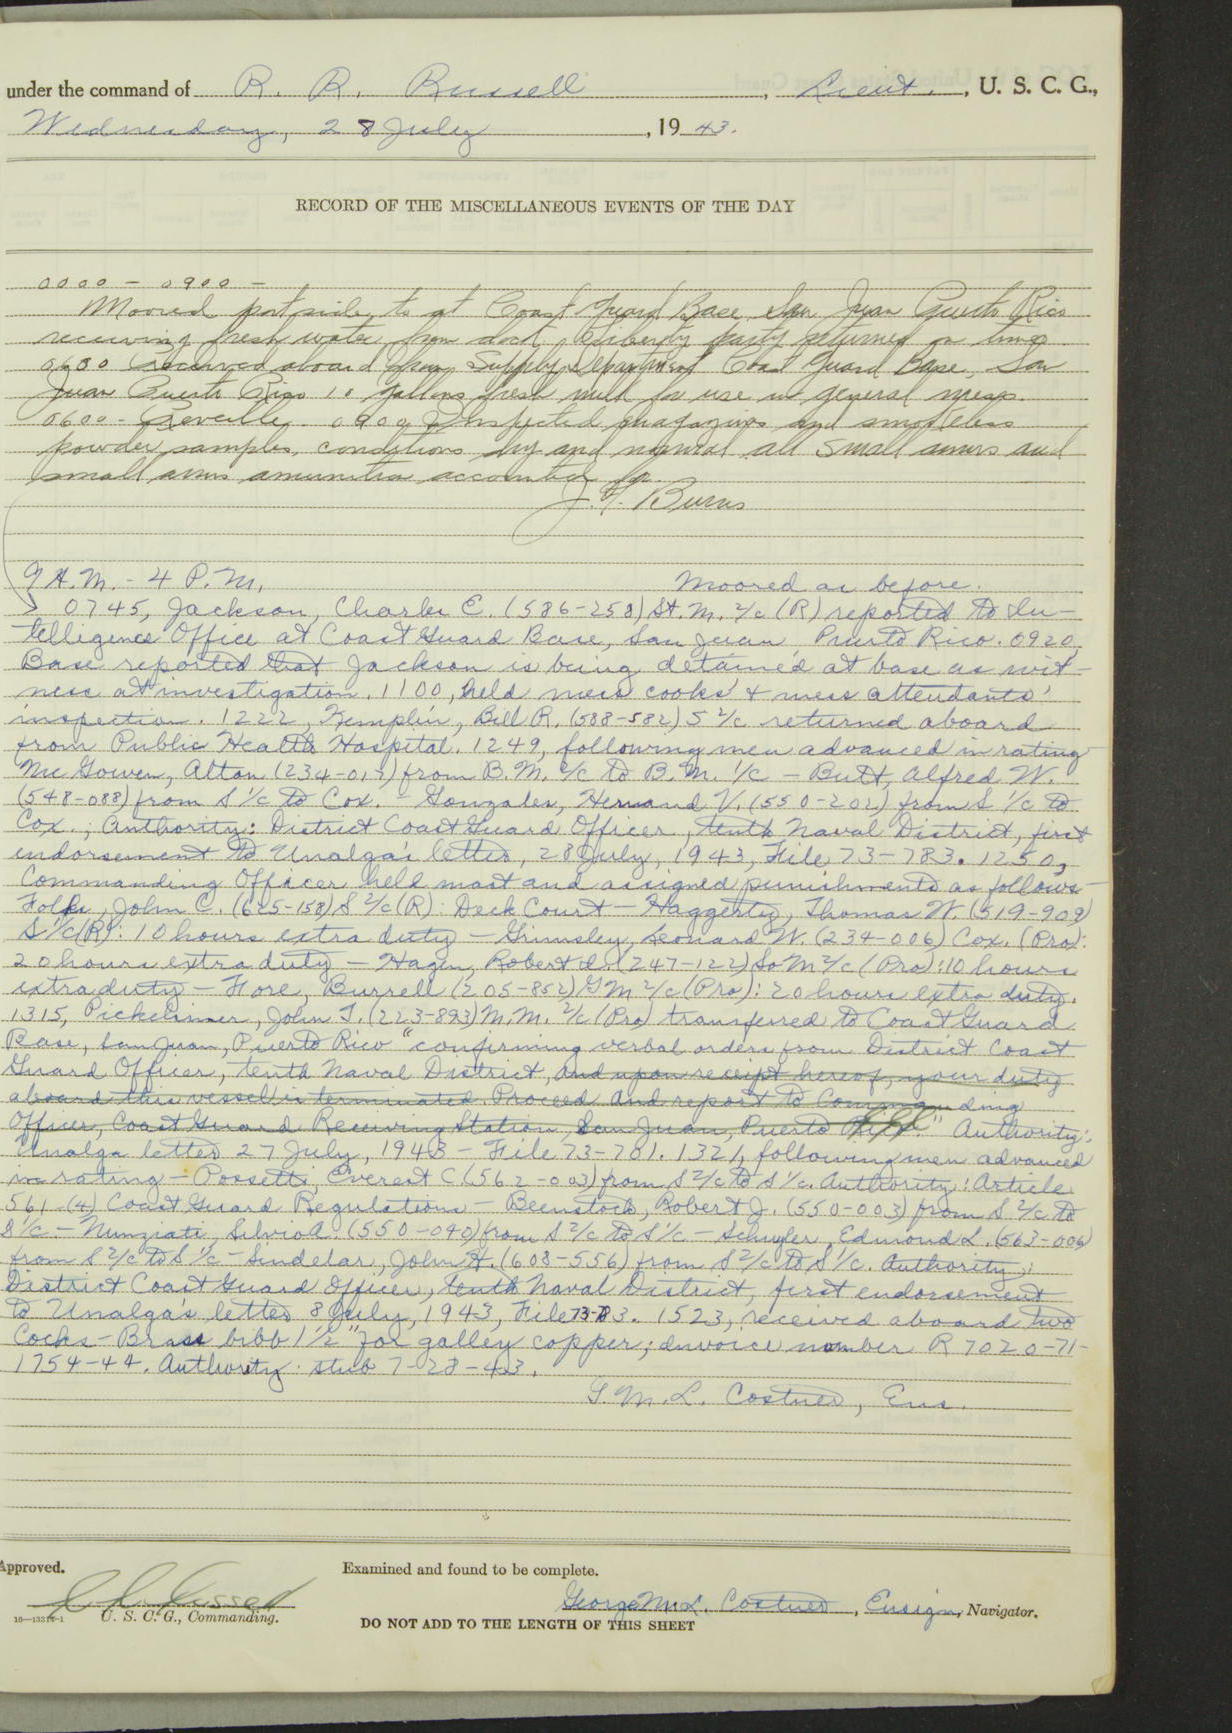 under the command of R. R. Russell, Lieut., U. S. C. G.,
Wednesday, 28 July, 1943.
RECORD OF THE MISCELLANEOUS EVENTS OF THE DAY
0000 - 0900 -
Moored port side to at Coast Guard Base, San Juan Puerto Rico
receiving fresh water from dock. Liberty party returned on time.
0630 Received aboard from Supply Department Coast Guard Base, San
Juan Puerto Rico 10 gallons fresh milk for use in general mess.
0600 - Reveille. 0900 Inspected magazines and smokeless
powder samples, conditions dry and normal all small arms and
small arms amunition accounted for.
J. F. Burns
9 A.M. - 4 P.M. Moored as before.
> 0745, Jackson, Charles E. (586-258) St. M. 2/c (R) reported to In-
telligence Office at Coast Guard Base, San Juan, Puerto Rico. 0920,
Base reported that Jackson is being detained at base as wit-
ness at investigation. 1100, held mess cooks' & mess attendants'
inspection. 1222, Templin, Bill R. (588-582) S 2/c returned aboard
from Public Health Hospital. 1249, following men advanced in rating
Mc Gowen, Alton (234-013) from B.M. 2/c to B.M. 1/c - Butt, Alfred W.
(548-088) from S 1/c to Cox. - Gonzales, Hernand V. (550-202) from S 1/c to
Cox.; Authority: District Coast Guard Officer, tenth Naval District, first
endorsement to Unalga's letter, 28 July, 1943, File 73-783. 1250,
Commanding Officer held mast and assigned punishments as follows -
Folks, John C. (625-158) S 2/c (R): Deck Court - Haggerty, Thomas W. (519-909)
S 1/c (R): 10 hours extra duty - Grimsley, Leonard W. (234-006) Cox. (Pro):
20 hours extra duty - Hagen, Robert L. (247-122) SoM 2/c (Pro): 10 hours
extra duty - Fore, Burrell (205-852) GM 2/c (Pro): 20 hours extra duty.
1315, Pickelsimer, John T. (223-893) M.M. 2/c (Pro) transferred to Coast Guard
Base, San Juan, Puerto Rico "confirming verbal orders from District Coast
Guard Officer, tenth Naval District, and upon receipt hereof, your duty
aboard this vessel is terminated. Proceed and report to Commanding
Officer, Coast Guard Receiving Station, San Juan, Puerto Rico." Authority:
Unalga letter 27 July, 1943 - File 73-701. 1321, following men advanced
in rating - Possetti, Everest C (562-003) from S 2/c to S 1/c. Authority: Article
561-(4) Coast Guard Regulations - Beenstock, Robert J. (550-003) from S 2/c to
S 1/c - Nunziati, Silvio A. (550-040) from S 2/c to S 1/c - Schuyler, Edmond L. (563-006)
from S 2/c to S 1/c - Sindelar, John H. (608-556) from S 2/c to S 1/c. Authority:
District Coast Guard Officer, tenth Naval District, first endorsement
to Unalga's letter 8 July, 1943, File 73-783. 1523, received aboard two
Cocks - Brass bibb 1 1/2" for galley copper; invoice number R 7020-71-
1754-44. Authority: stub 7-28-43.
G. M. L. Costner, Ens.
Approved. Examined and found to be complete.
George M. L. Costner, Ensign, Navigator.
16-13316-1 U. S. C. G., Commanding.
DO NOT ADD TO THE LENGTH OF THIS SHEET